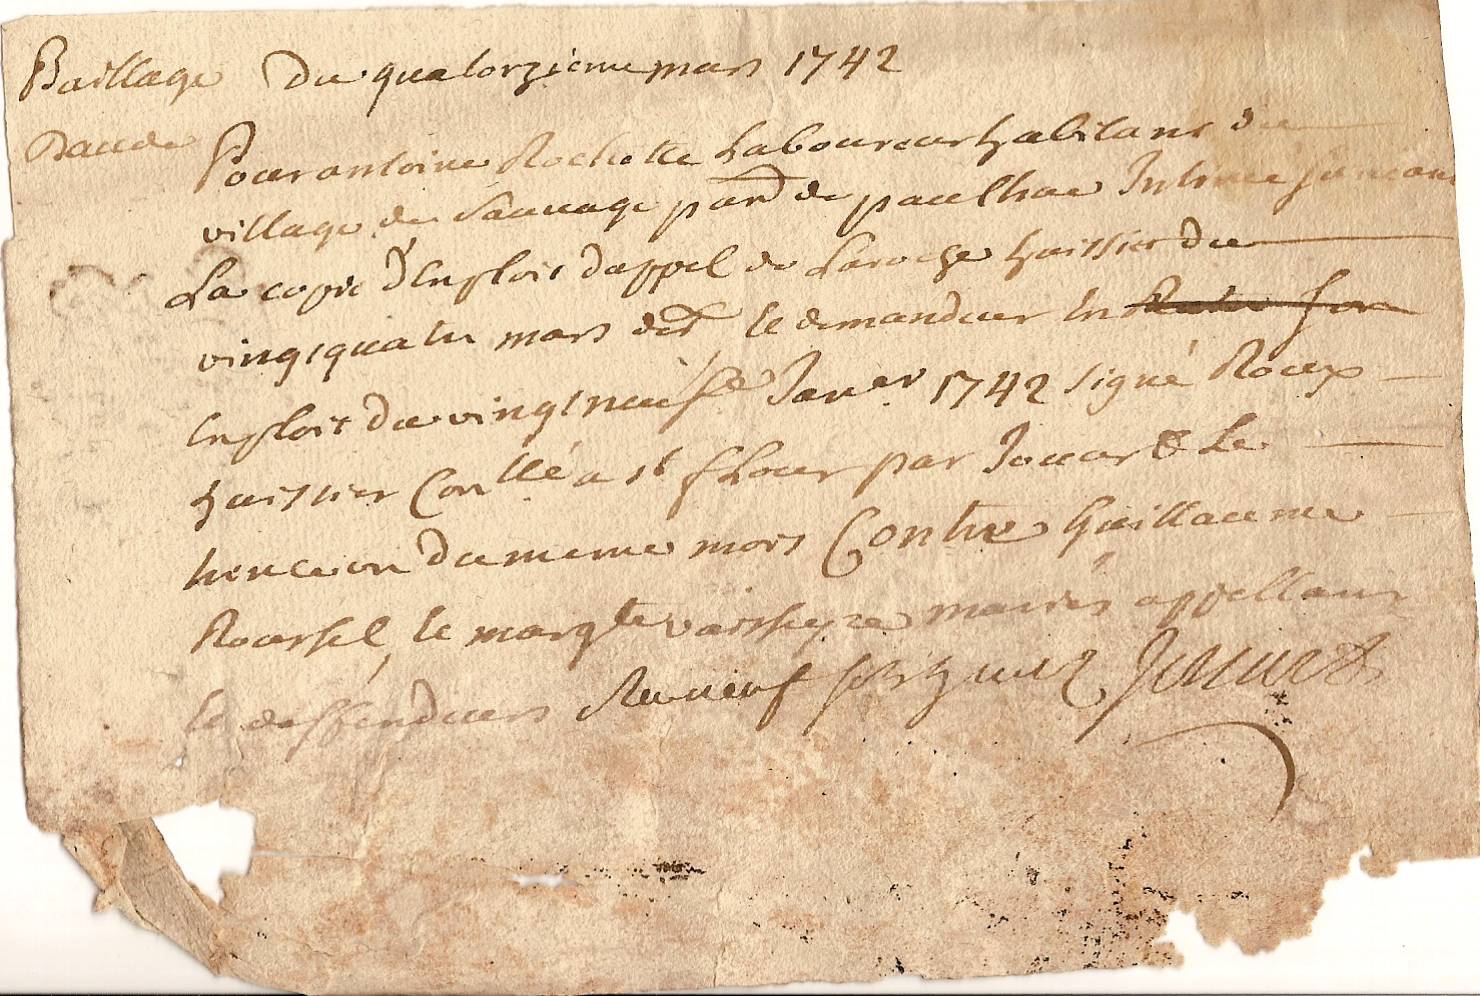 Baillage Du quatorzieme mars 1742
Daude
Pour antoine Rochette Laboureur habitant du
village de Sauvage parr de paulhac Intimé suivant
La copie D'Exploit d'appel de Laroche huissier du
vingtquatre mars der et demandeur En
Exploit du vingtneuf Janer 1742 signé Roux
huissier Conllé a st flour par Jouard Le
du meme mois Contre Guillaume
Roussel, et margte vaisseyre mariés appellans
et deffendeurs